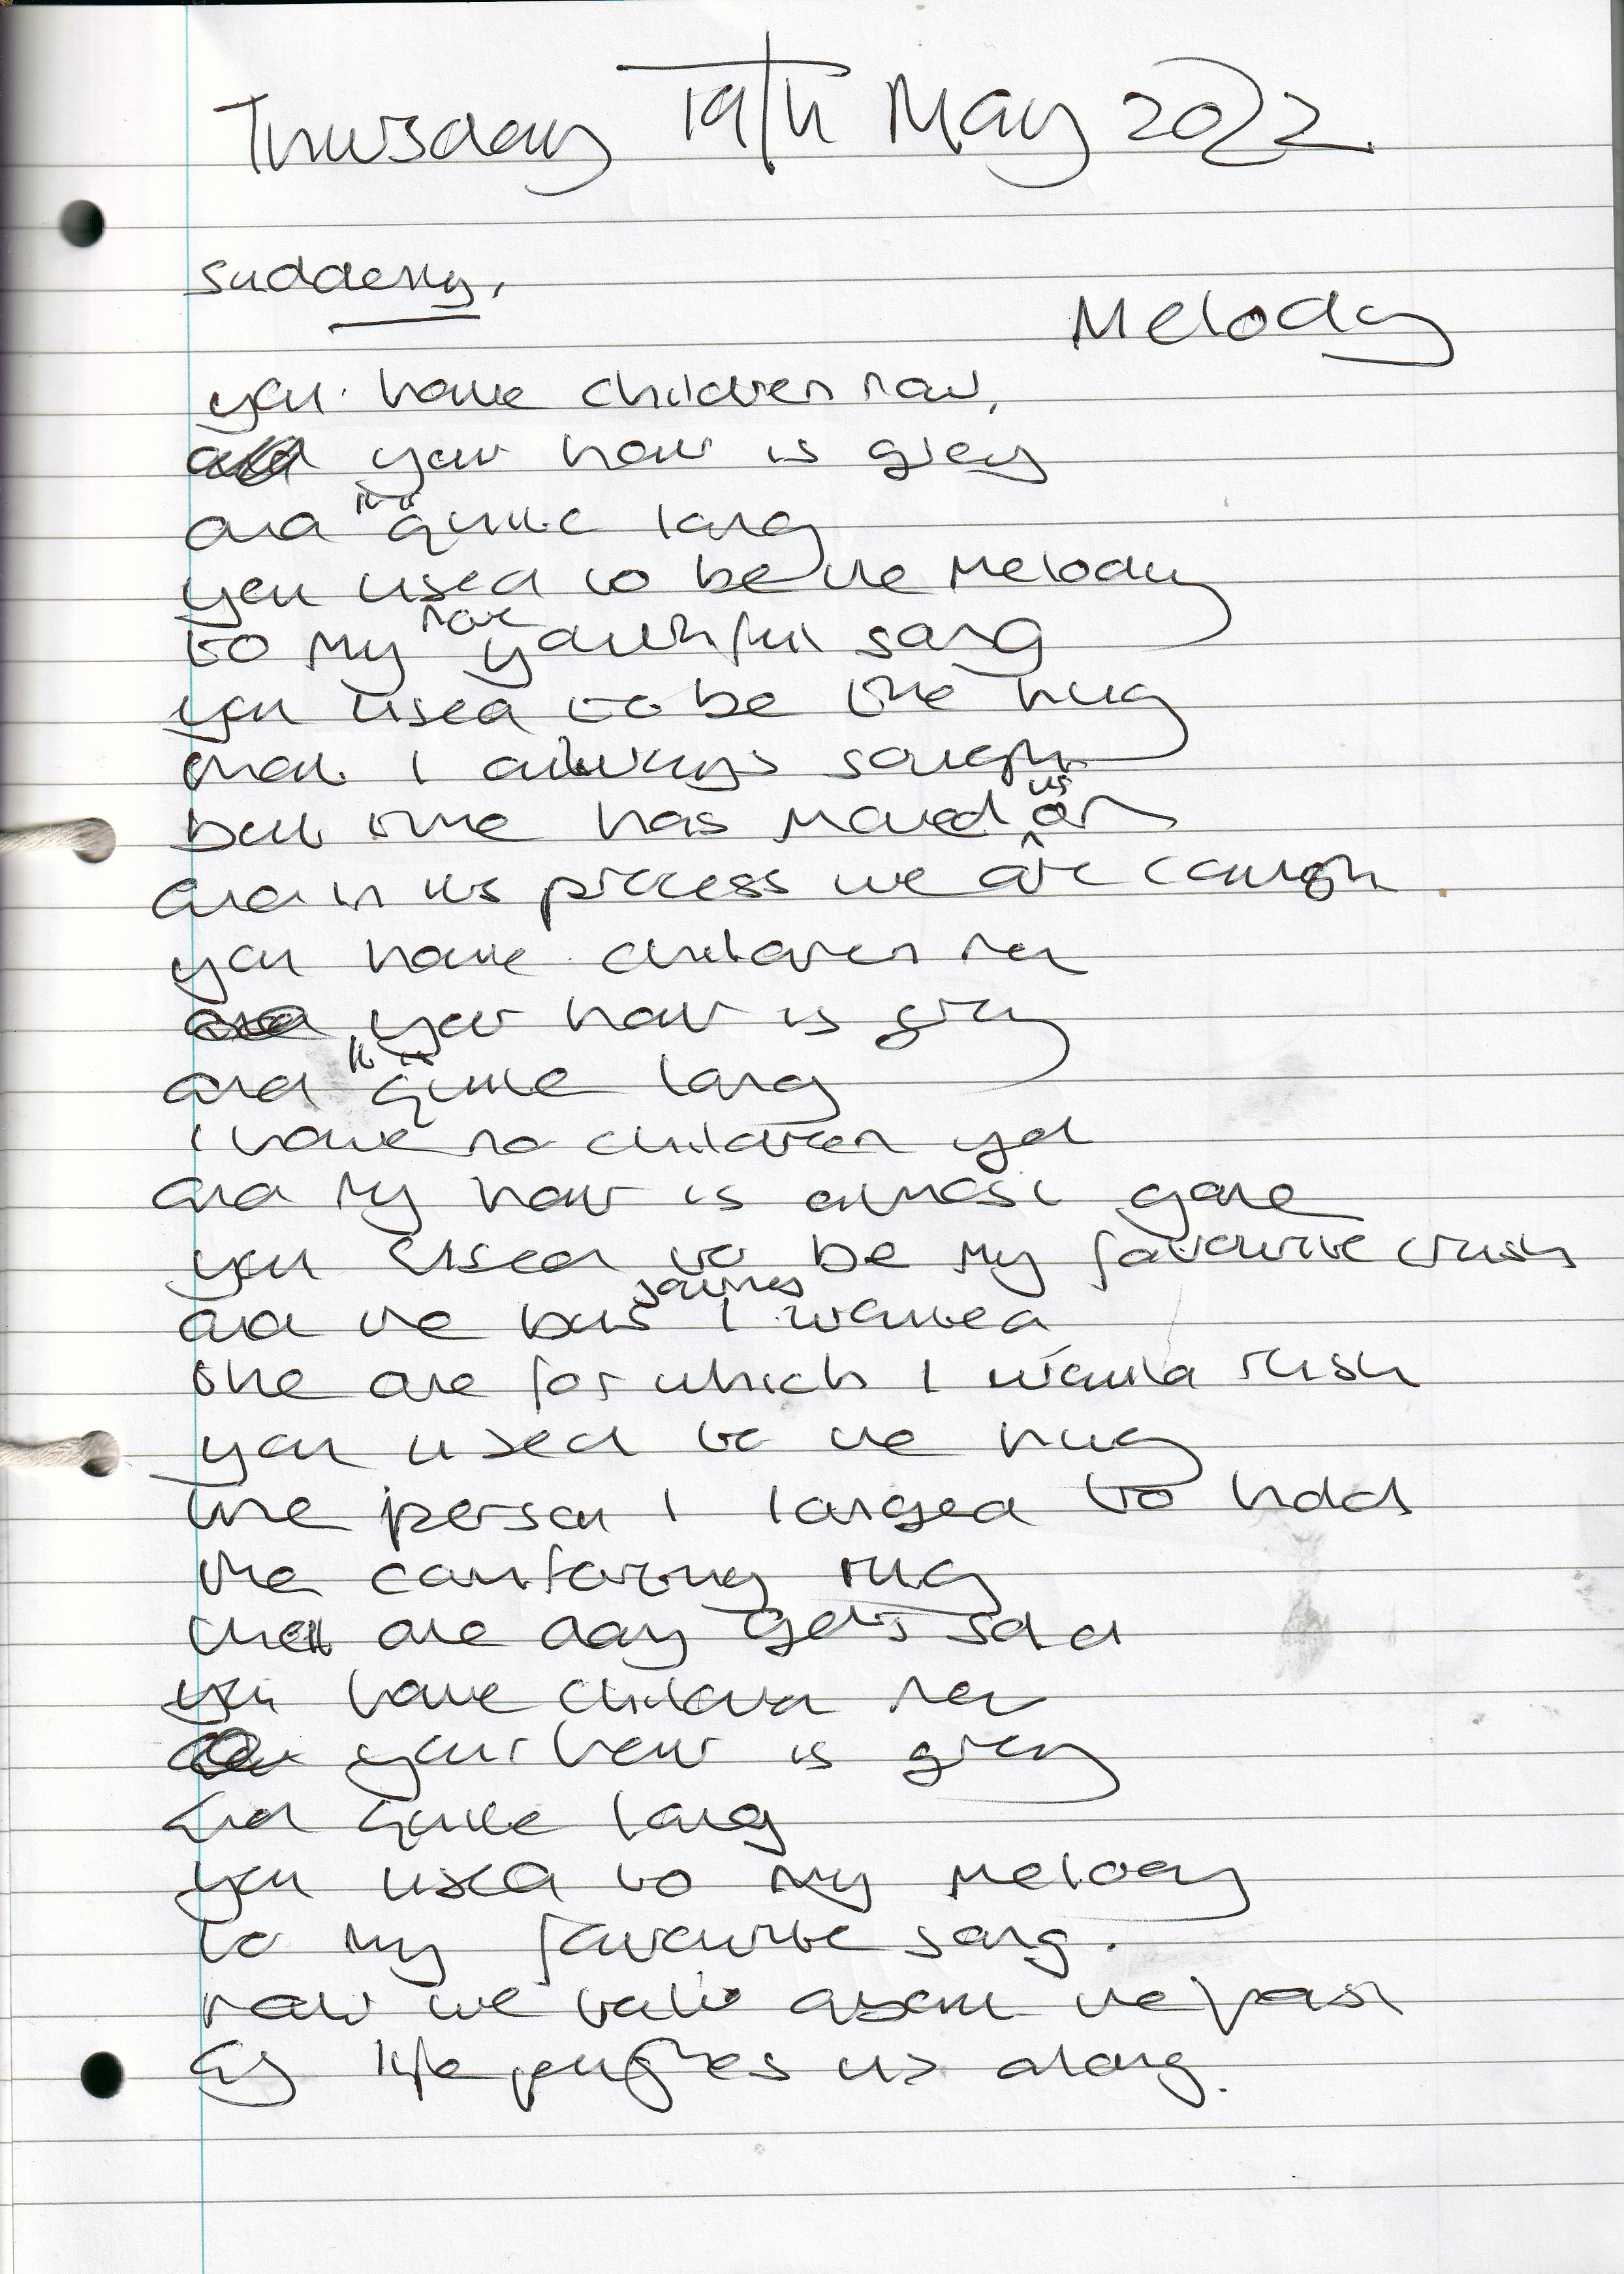 Thursday 19th May 2022.
suddenly,
Melody
you have children now,
your hair is grey
and it is quite long
you used to be the Melody
to my more youthful song
you used to be the hug
that I always sought
but time has moved us on
and in its process we are caught
you have children now
your hair is grey
and it is quite long
I have no children yet
and my hair is almost gone
you used to be my favourite crush
and the bus journey I wanted
the one for which I would rush
you used to the hug
the person I longed to hold
the comforting rug
that one day gets sold
you have children now
your hair is grey
and quite long
you used to my melody
to my favourite song.
now we talk about the past
as life pushes us along.